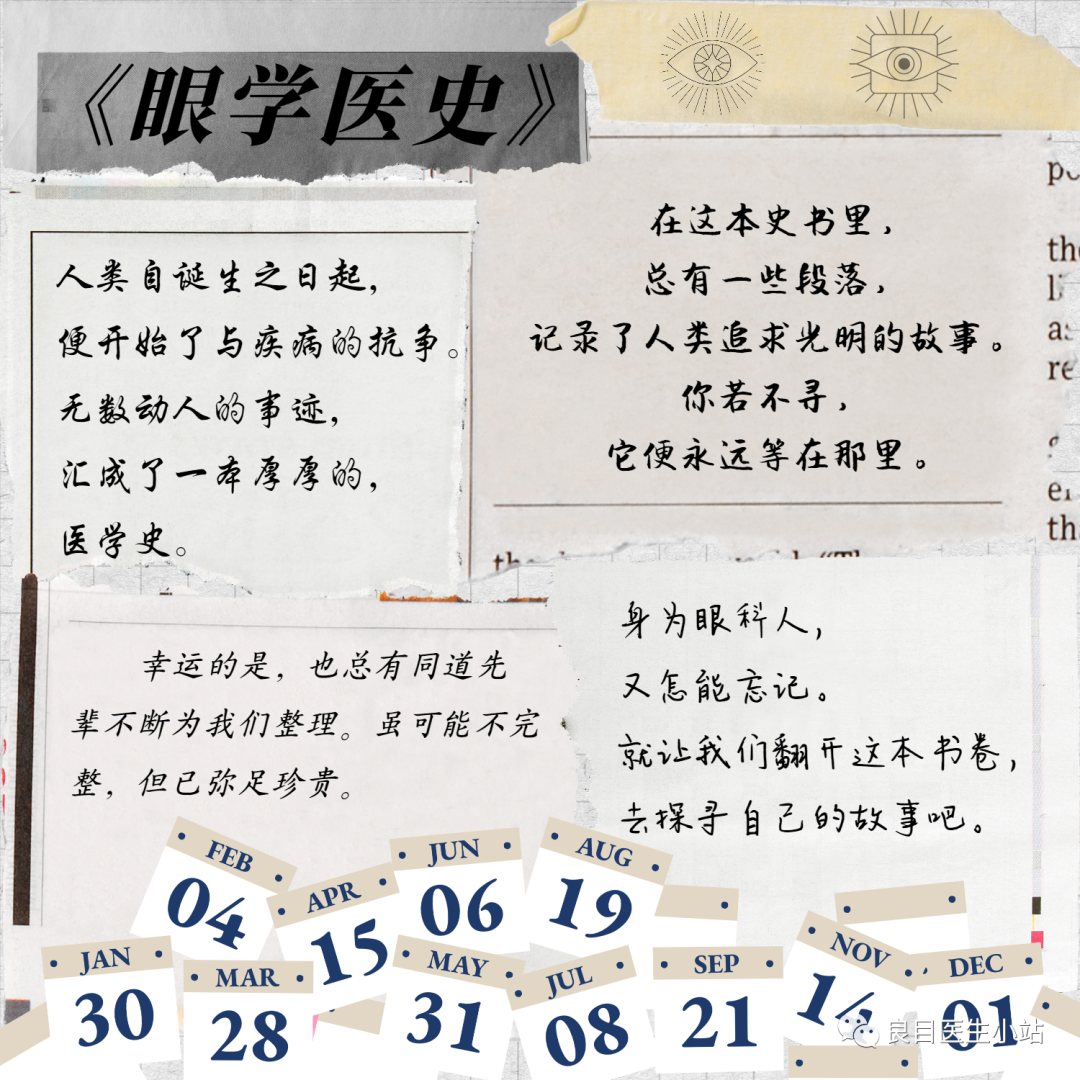 《眼学医史》
人类自诞生之日起，
便开始了与疾病的抗争。
无数动人的事迹，
汇成了一本厚厚的，
医学史。
在这本史书里，
总有一些段落，
记录了人类追求光明的故事。
你若不寻，
它便永远等在那里。
幸运的是，也总有同道先
辈不断为我们整理。虽可能不完
整，但已弥足珍贵。
身为眼科人，
又怎能忘记。
就让我们翻开这本书卷，
去探寻自己的故事吧。
FEB
04
APR
15
JUN
06
AUG
19
JAN
30
MAR
28
MAY
31
JUL
08
SEP
21
NOV
14
DEC
01
良目医生小站